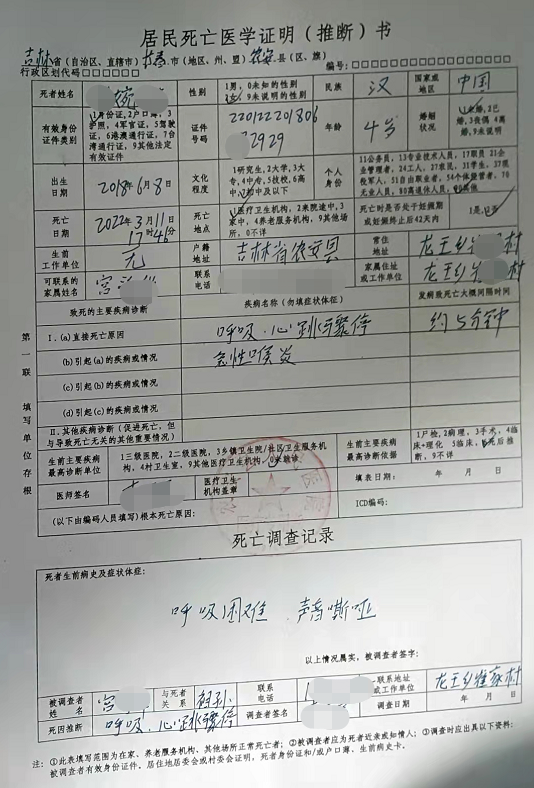 居民死亡医学证明（推断）书
吉林省（自治区、直辖市）长春市（地区、州、盟）农安县（区、旗）
行政区划代码□□□□□□ 编号：□□□□□□□□□□□□□□□
死者姓名 性别 1男，0未知的性别 2女，9未说明的性别 民族 汉 国家或地区 中国
有效身份证件类别 1身份证，2户口簿，3护照，4军官证，5驾驶证，6港澳通行证，7台湾通行证，9其他法定有效证件 证件号码 220122201806 2929 年龄 4岁 婚姻状况 1未婚，2已婚，3丧偶 4离婚，9未说明
出生日期 2018年6月8日 文化程度 1研究生，2大学，3大专，4中专，5技校，6高中，7初中及以下 个人身份 11公务员，13专业技术人员，17职员 21企业管理者，24工人，27农民，31学生，37现役军人，51自由职业者，54个体经营者，70无业人员，80离退休人员，90其他
死亡日期 2022年3月11日 17时46分 死亡地点 1医疗卫生机构，2来院途中，3家中，4养老服务机构，9其他场所，0不详 死亡时是否处于妊娠期或妊娠终止后42天内 1是，2否
生前工作单位 无 户籍地址 吉林省农安县 常住地址 龙王乡 村
可联系的家属姓名 宫 联系电话 家属住址或工作单位 龙王乡 村
致死的主要疾病诊断 疾病名称（勿填症状体征） 发病致死亡大概间隔时间
第一联 填写单位存根
Ⅰ.(a)直接死亡原因 呼吸.心跳骤停 约5分钟
(b)引起(a)的疾病或情况 急性喉炎
(c)引起(b)的疾病或情况
(d)引起(c)的疾病或情况
Ⅱ.其他疾病诊断（促进死亡，但与导致死亡无关的其他重要情况）
生前主要疾病最高诊断单位 1三级医院，2二级医院，3乡镇卫生院/社区卫生服务机构，4村卫生室，9其他医疗卫生机构，0未就诊 生前主要疾病最高诊断依据 1尸检，2病理，3手术，4临床+理化 5临床，6死后推断，9不详
医师签名 医疗卫生机构盖章 填表日期： 年 月 日
（以下由编码人员填写）根本死亡原因： ICD编码：
死亡调查记录
死者生前病史及症状体征：
呼吸困难 声音嘶哑
以上情况属实，被调查者签字：
被调查者姓名 宫 与死者关系 祖孙 联系电话 联系地址或工作单位 龙王乡崔家村
死因推断 呼吸.心跳骤停 调查者签名 调查日期 年 月 日
注：①此表填写范围为在家、养老服务机构、其他场所正常死亡者；②被调查者应为死者近亲或知情人；③调查时应出具以下资料：
被调查者有效身份证件，居住地居委会或村委会证明，死者身份证和/或户口簿、生前病史卡。